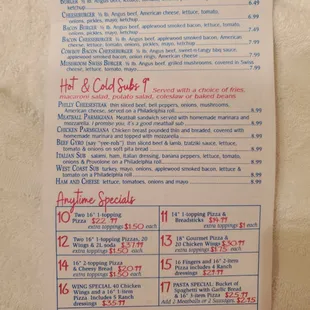 BURGER ½ lb. Angus beef, American cheese, lettuce, tomato, onions, pickles, mayo, ketchup 6.49
CHEESEBURGER ½ lb. Angus beef, American cheese, lettuce, tomato, onions, pickles, mayo, ketchup 6.99
BACON BURGER ½ lb. Angus beef, applewood smoked bacon, lettuce, tomato, onions, pickles, mayo, ketchup 7.99
BACON CHEESEBURGER ½ lb. Angus beef, applewood smoked bacon, American cheese, lettuce, tomato, onions, pickles, mayo, ketchup
COWBOY BACON CHEESEBURGER ½ lb. Angus beef, sweet n'tangy bbq sauce, applewood bacon, onion rings, American cheese 7.99
MUSHROOM SWISS BURGER ½ lb. Angus beef, grilled mushrooms, covered in Swiss cheese, lettuce, tomato, mayo 7.99
Hot & Cold Subs 9" Served with a choice of fries,
macaroni salad, potato salad, coleslaw or baked beans
PHILLY CHEESESTEAK thin sliced beef, bell peppers, onions, mushrooms,
American cheese, served on a Philadelphia roll 8.99
MEATBALL PARMIGIANA Meatball sandwich served with homemade marinara and
mozzarella. I promise you, it's a good meatball sub 8.99
CHICKEN PARMIGIANA Chicken breast pounded thin and breaded, covered with
homemade marinara and topped with mozzarella 8.99
BEEF GYRO (say "yee-ro") thin sliced beef & lamb, tzatziki sauce, lettuce,
tomato & onions on soft pita bread 8.99
ITALIAN SUB salami, ham, Italian dressing, banana peppers, lettuce, tomato,
onions & Provolone on a Philadelphia roll 8.99
WEST COAST SUB turkey, mayo, onions, applewood bacon, lettuce &
tomato on a Philadelphia roll 8.99
HAM AND CHEESE lettuce, tomatoes, onions and mayo 8.99
Anytime Specials
10 Two 16" 1-topping
Pizza $22.99
extra toppings $1.50 each
11 14" 1-topping Pizza &
Breadsticks $14.99
extra toppings $1 each
12 Two 16" 1-topping Pizzas, 20
Wings & 2L soda $37.99
extra toppings $1.50 each
13 18" Gourmet Pizza &
20 Chicken Wings $30.99
extra toppings $1.75 each
14 16" 2-topping Pizza
& Cheesy Bread $20.99
extra toppings $1.50 each
15 16 Fingers and 16" 2-item
Pizza includes 4 Ranch
dressings $27.99
16 WING SPECIAL 40 Chicken
Wings and a 16" 1-item
Pizza. Includes 5 Ranch
dressings $35.99
17 PASTA SPECIAL Bucket of
Spaghetti with Garlic Bread
& 16" 3-item Pizza $25.99
Add 2 Meatballs or 2 Sausages $2.95